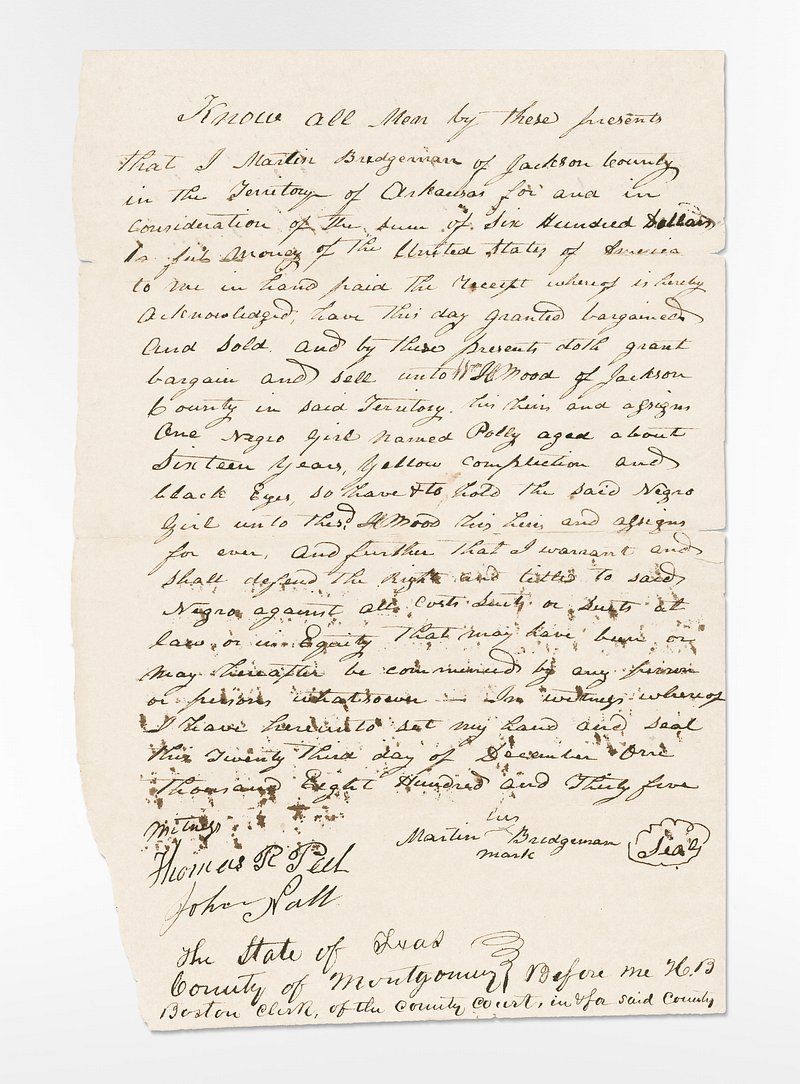 Know all Men by these presents
that I Martin Bridgeman of Jackson County
in the Territory of Arkansas for and in
consideration of the sum of Six Hundred Dollars
la full Money of the United States of America
to me in hand paid the receipt whereof is hereby
acknowledged, have this day granted bargained
and sold and by these presents doth grant
bargain and sell unto Wm H Wood of Jackson
County in said Territory, his heirs and assigns
One Negro Girl named Polly aged about
Sixteen Years, Yellow Complection and
black Eyes, so have & to hold the said Negro
Girl unto the sd. H Wood his heirs and assigns
for ever, and further that I warrant and
shall defend the Right and title to said
Negro against all Costs or Suits at
law or in Equity that may have been or
may hereafter be commenced by any person
or persons whatsown — In witness whereof
I have hereunto set my hand and seal
this Twenty third day of December One
thousand Eight Hundred and Thirty five
Witness
his
Martin Bridgeman Seal
mark
Thomas R Pell
John Nall
The State of Texas
County of Montgomery } Before me H B
Boston Clerk, of the County Court, in & for said County